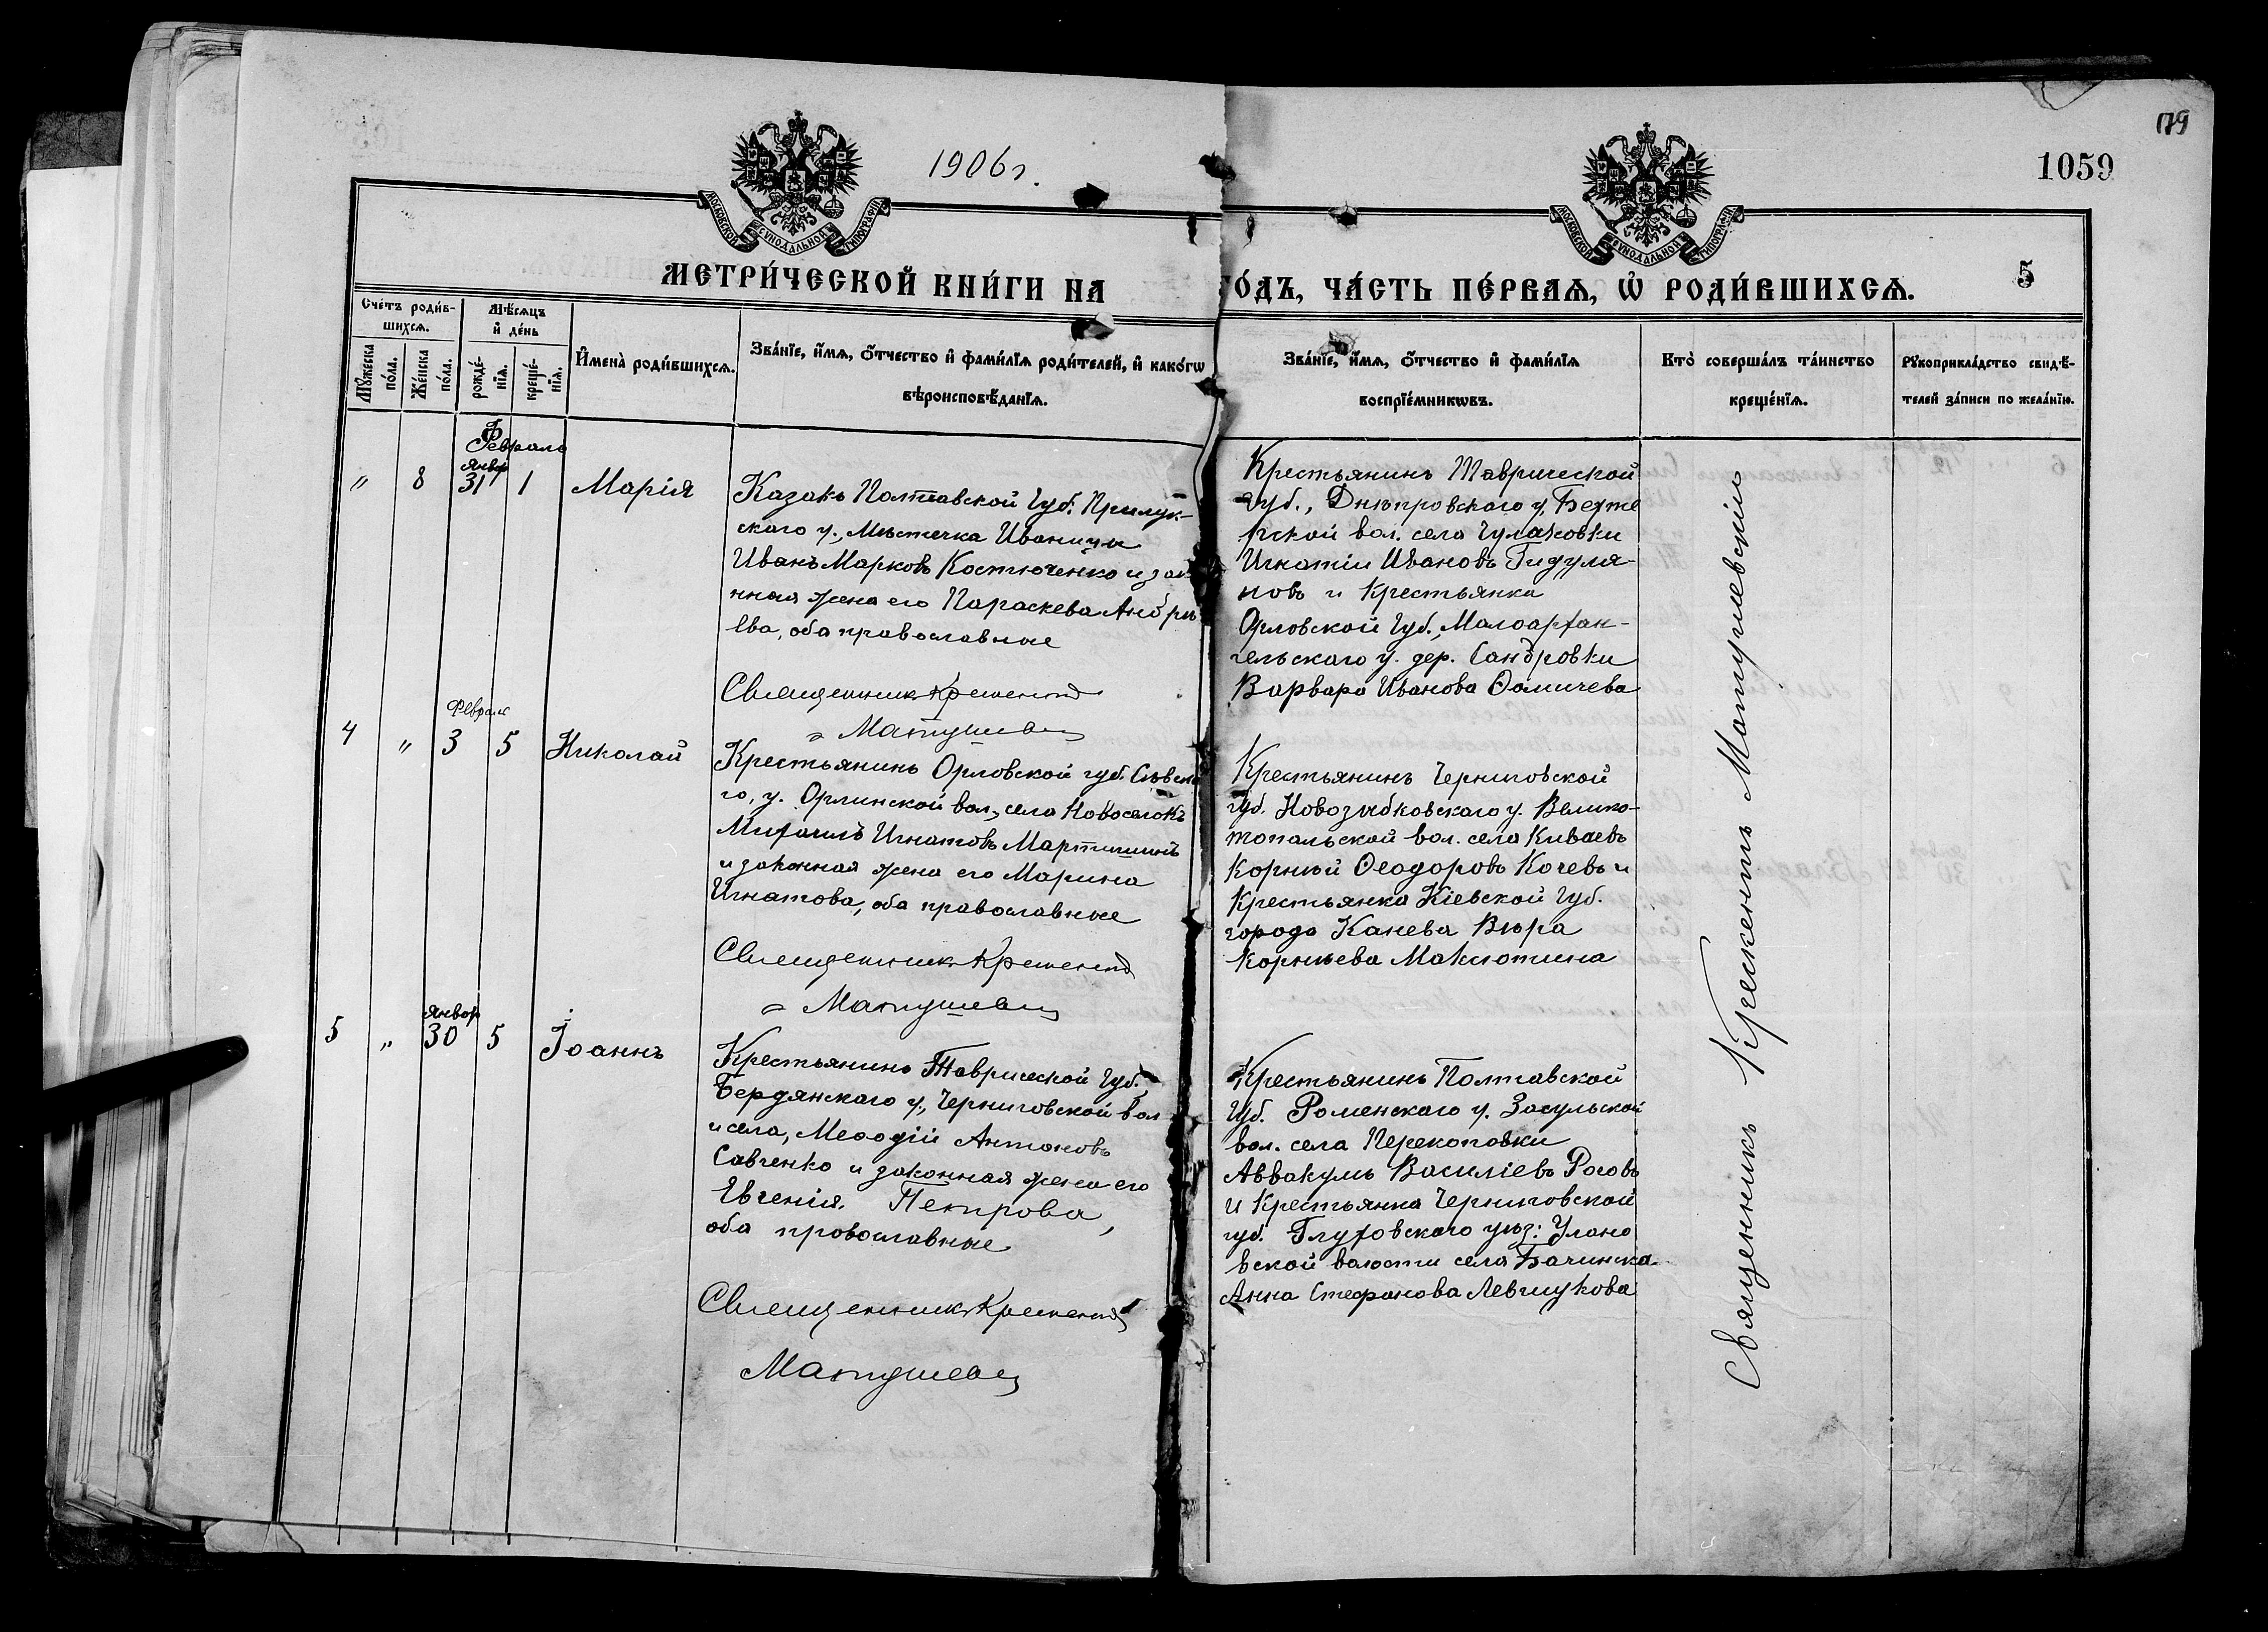 179
1059
1906 г.
МОСКОВСКОЙ СѴНОДАЛЬНОЙ ТИПОГРАФІИ
МОСКОВСКОЙ СѴНОДАЛЬНОЙ ТИПОГРАФІИ
МЕТРИ́ЧЕСКОЙ КНИ́ГИ НА ГО́ДЪ, ЧА́СТЬ ПЕ́РВАѦ, Ѡ҆ РОДИ́ВШИХСѦ.
5
Сче́тъ роди́в-
шихсѧ.
Мꙋ́жеска по́ла.
Же́нска по́ла.
Мѣ́сѧцъ
и҆ де́нь
рожде́-
нїѧ.
креще́-
нїѧ.
И҆мена̀ роди́вшихсѧ.
Зва́нїе, и҆́мѧ, ѻ҆́тчество и҆ фами́лїѧ роди́телей, и҆ како́гѡ
вѣроисповѣ́данїѧ.
Зва́нїе, и҆́мѧ, ѻ҆́тчество и҆ фами́лїѧ
воспрїе́мникѡвъ.
Кто̀ соверша́лъ та́инство
креще́нїѧ.
Рꙋкоприкла́дство свидѣ́-
телей за́писи по жела́нїю.
Февраль
Янвр
" 8 31 1 Марія
Казакъ Полтавской Губ. Прилук-
скаго у., Мѣстечка Иваницы
Иванъ Марковъ Костюченко и зак
нная жена его Параскева Андрѣ
ева, оба православные
Священник Крескентъ
Матушевск
Крестьянинъ Таврической
губ., Днѣпровскаго у, Бехте
рской вол. села Чулаковки
Игнатій Ивановъ Гидуля-
новъ и Крестьянка
Орловской Губ., Малоархан-
гельскаго у. дер. Сандровки
Варвара Иванова Ѳомичева
Феврал
4 " 3 5 Николай
Крестьянинъ Орловской губ. Сѣвска
го, у. Орлинской вол., села Новоселокъ
Михаилъ Игнатовъ Мартишинъ
и законная жена его Марина
Игнатова, оба православные
Священник Крескентъ
Матушевск
Крестьянинъ Черниговской
губ. Новозыбковскаго у. Велико-
топальской вол. села Киваевъ
Корній Ѳеодоровъ Кочевъ и
Крестьянка Кіевской Губ.
города Канева Вѣра
Корнѣева Маклотина
Январ
5 " 30 5 Іоаннъ
Крестьянинъ Таврической Губ.
Бердянскаго у., Черниговской вол
и села, Меѳодій Антоновъ
Савченко и законная жена его
Евгенія Петрова,
оба православные
Священник Крескентъ
Матушевск
Крестьянинъ Полтавской
Губ. Роменскаго у. Засульской
вол. села Перекоповки
Аввакумъ Василіевъ Роговъ
и Крестьянка Черниговской
губ. Глуховскаго уѣз: Улано
вской волости села Бачинска
Анна Стефанова Левчукова
Священникъ Крескентъ Матушевскій